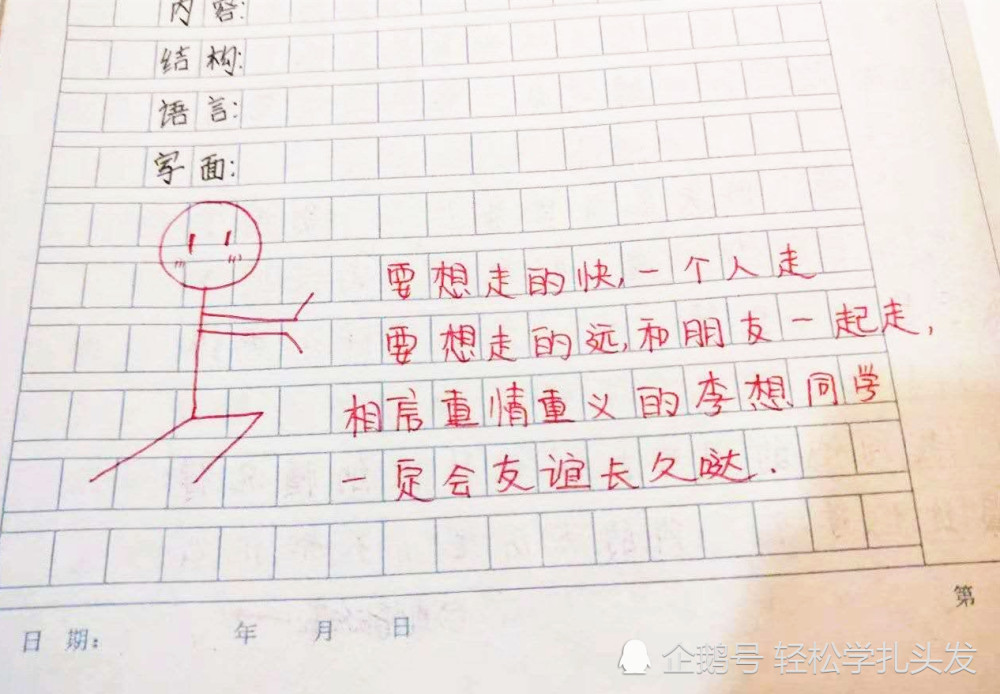 内容:
结构:
语言:
字面:
要想走的快,一个人走
要想走的远,和朋友一起走,
相信重情重义的李想同学
一定会友谊长久哒.
日 期: 年 月 日
第
企鹅号 轻松学扎头发